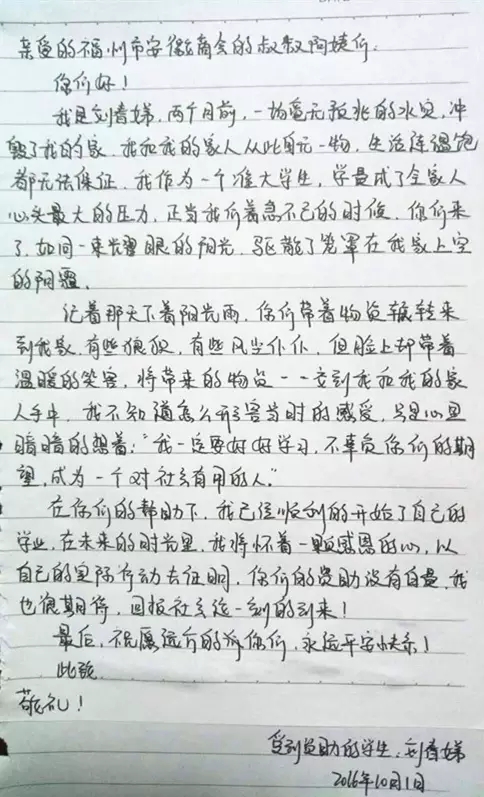 亲爱的福州市安徽商会的叔叔阿姨们:
你们好!
我是刘春娣,两个月前,一场毫无预兆的水灾,冲
毁了我的家,我和我的家人从此身无一物,生活连温饱
都无法保证,我作为一个准大学生,学费成了全家人
心头最大的压力,正当我们着急不已的时候,你们来
了,如同一束光耀眼的阳光,驱散了笼罩在我家上空
的阴霾。
记着那天下着阳光雨,你们带着物资辗转来
到我家,有些狼狈,有些风尘仆仆,但脸上却带着
温暖的笑容,将带来的物资一一交到我和我的家
人手中,我不知道怎么形容当时的感受,只是心里
暗暗的想着:“我一定要好好学习,不辜负你们的期
望,成为一个对社会有用的人。”
在你们的帮助下,我已经顺利的开始了自己的
学业,在未来的时光里,我将怀着一颗感恩的心,以
自己的实际行动去证明,你们的资助没有白费,我
也很期待,回报社会这一刻的到来!
最后,祝愿远方的你们,永远平安快乐!
此致
敬礼!
受到资助的学生:刘春娣
2016年10月1日